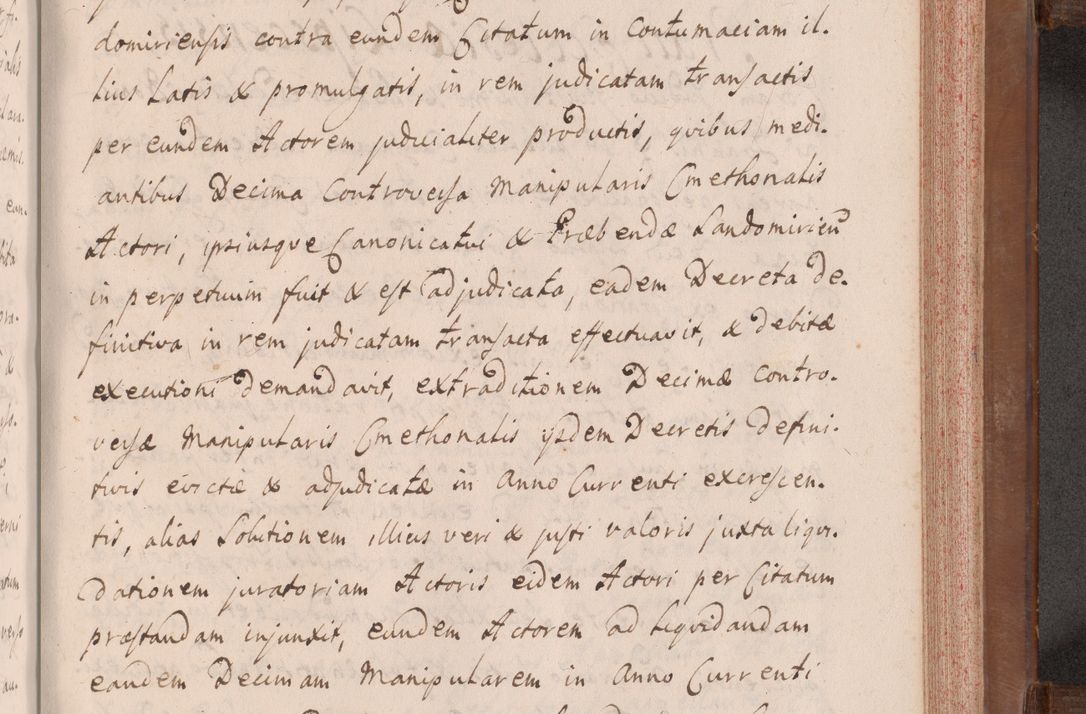 domiriensis contra eundem Citatum in Contumaciam il.
lius Latis & promulgatis, in rem judicatam transactis
per eundem Actorem judicialiter productis, qvibus medi.
antibus Decima Controversa Manipularis Cmethonalis
Actori, ipsiusqve Canonicatui & Præbendæ Sandomirien̄
in perpetuum fuit & est adjudicata, eadem Decreta de.
finitiva in rem judicatam transacta effectuavit, & debitæ
executioni demandavit, extraditionem Decimæ contro.
versæ Manipularis Cmethonalis ijsdem Decretis defini.
tivis evictæ & adjudicatæ in Anno Currenti excrescen.
tis, alias Solutionem illius veri & justi valoris juxta liqvi.
dationem juratoriam Actoris eidem Actori per Citatum
præstandam injunxit, eundem Actorem ad liqvidandam
eandem Decimam Manipularem in Anno Currenti